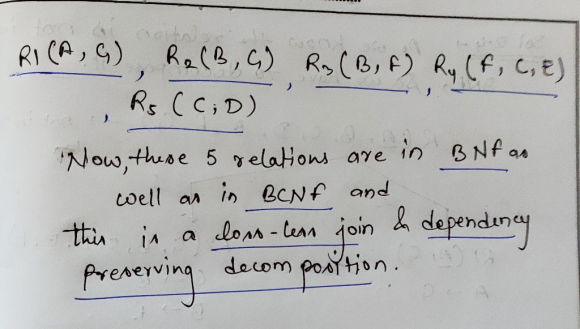 R1 (A, G), R2 (B, G), R3 (B, F), R4 (F, C, E)
, R5 (C, D)
Now, these 5 relations are in BNF as
well as in BCNF and
this is a loss-less join & dependency
preserving decomposition.